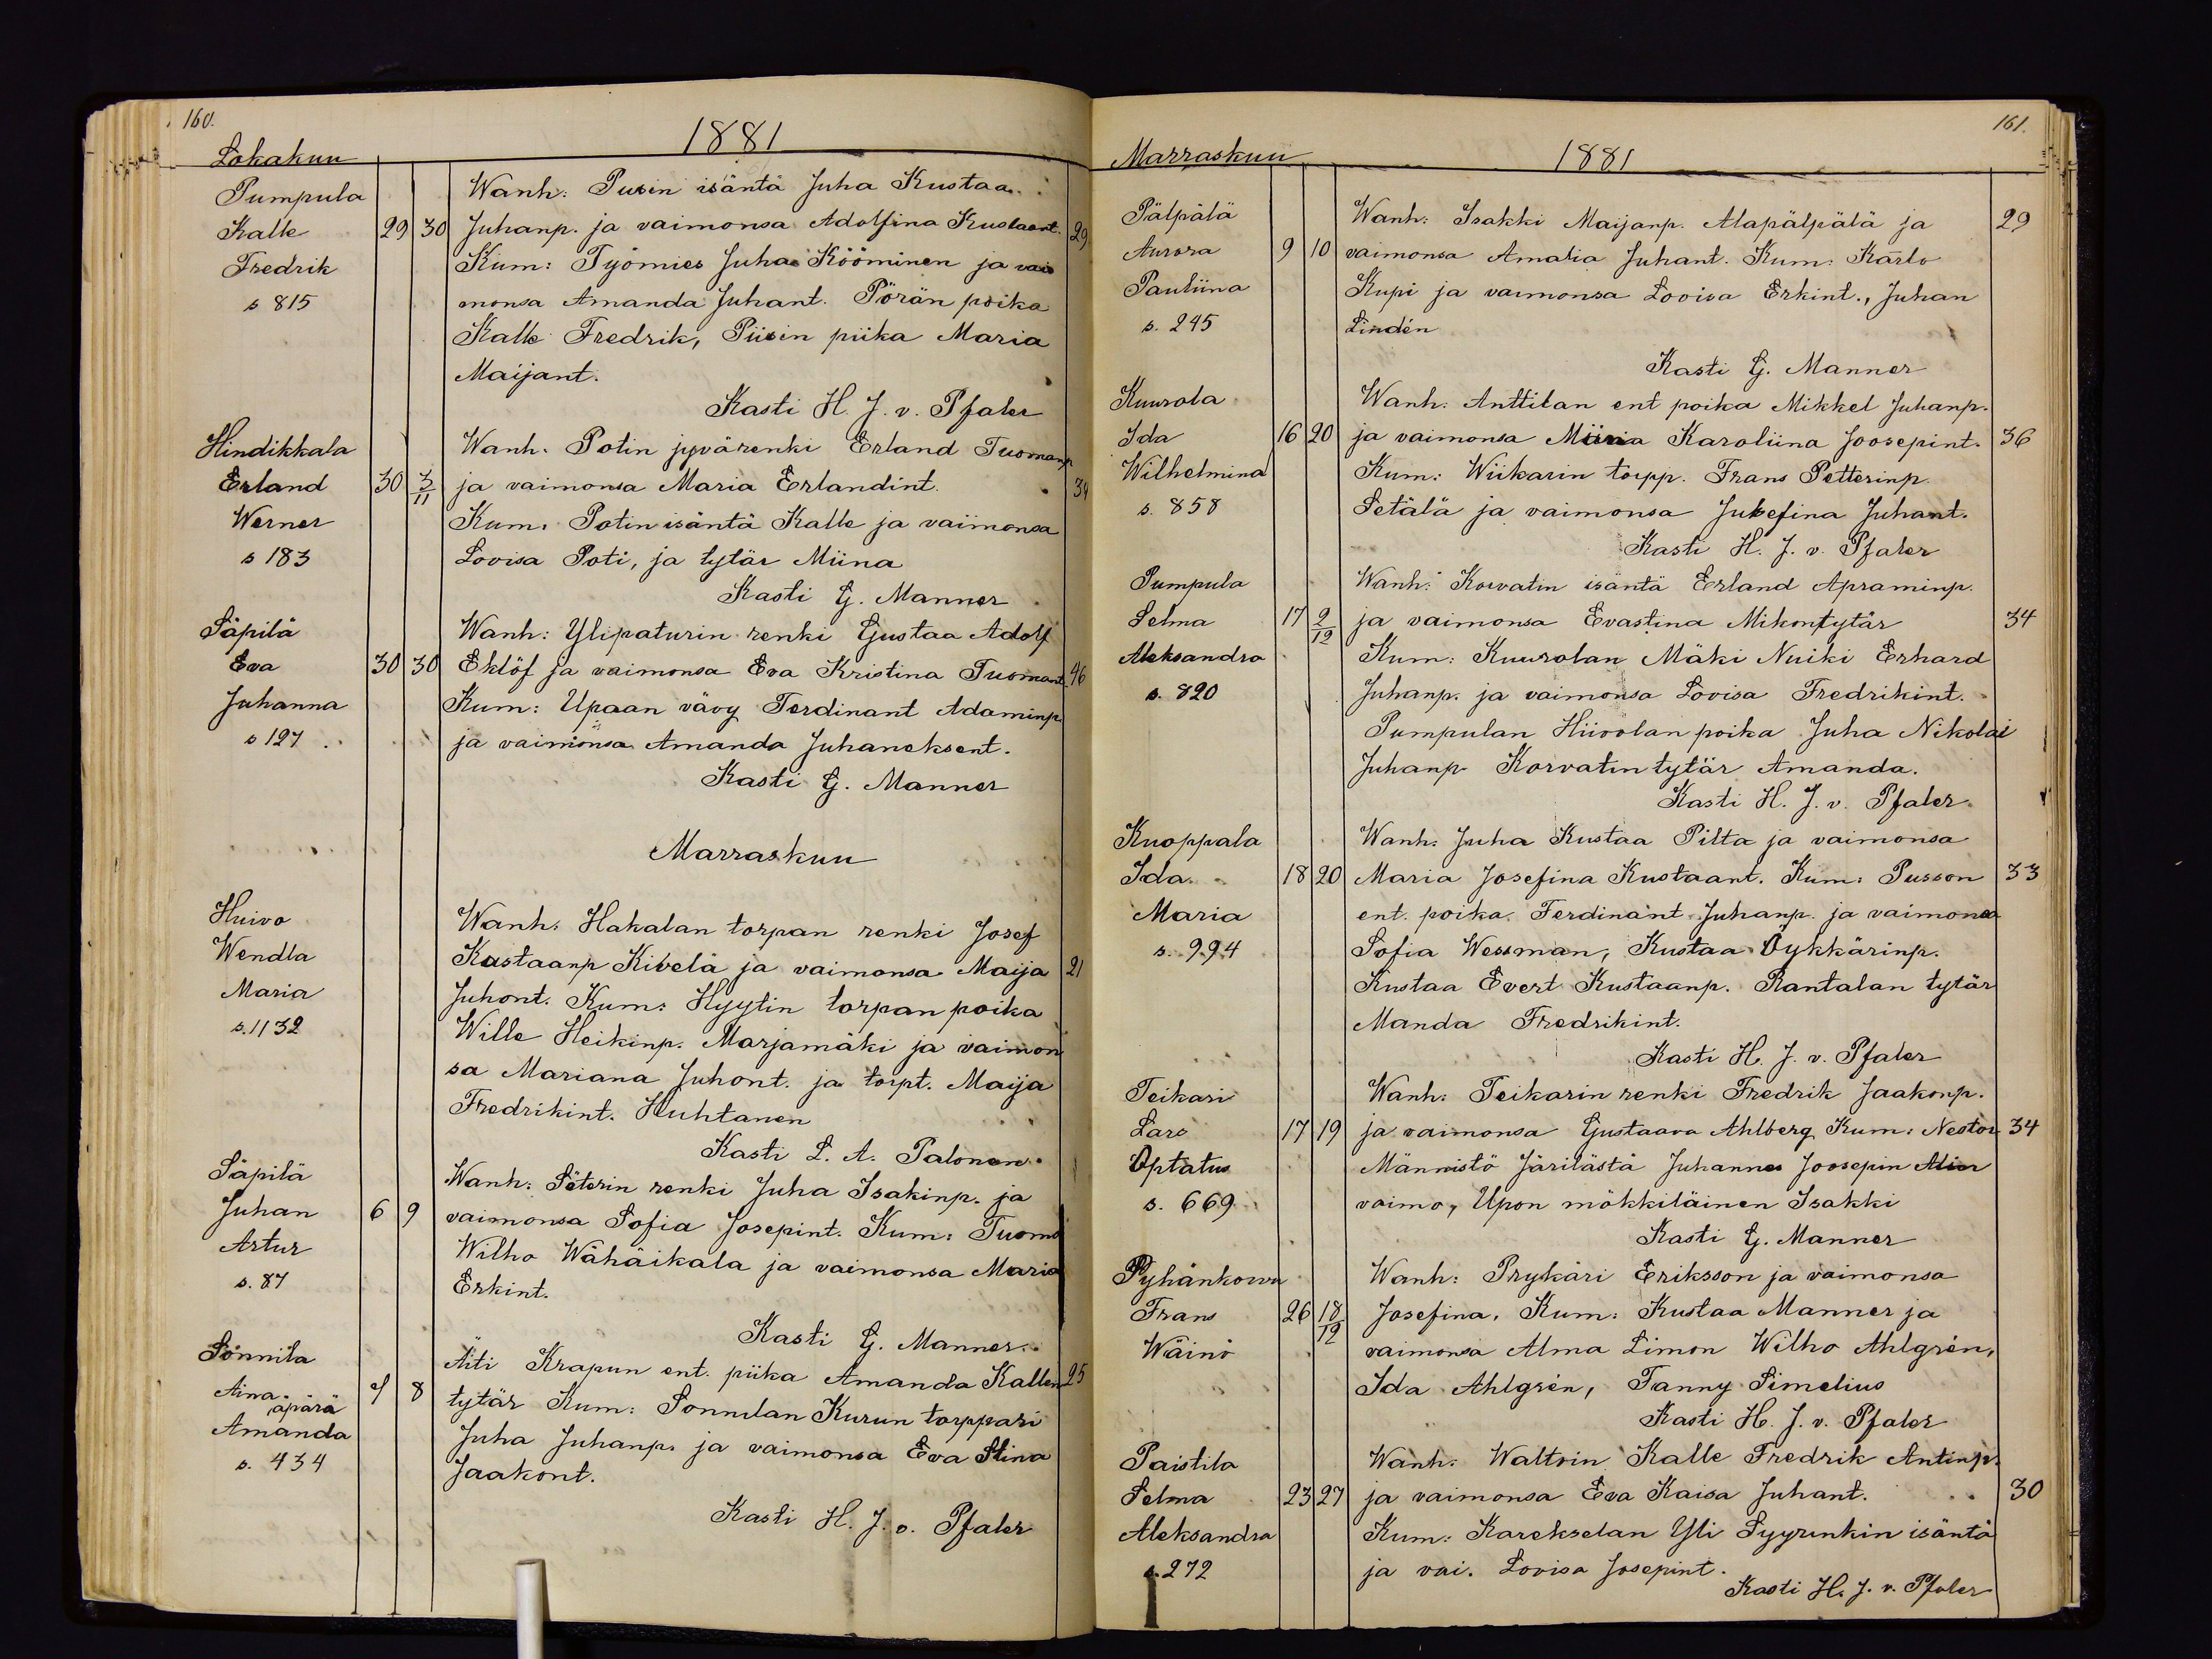 160.
Lokakuu
1881
Pumpula
Wanh: Pusin isäntä Juha Kustaa
Kalle 29 30 Juhanp. ja vaimonsa Adolfina Kustaant. 29
Fredrik Kum: Työmies Juha Kööminen ja vai
s 815 monsa Amanda Juhant. Pörän poika
Kalle Fredrik, Piisin piika Maria
Maijant.
Kasti H. J. v. Pfaler
Hindikkala Wanh. Potin jyvärenki Erland Tuomanp
Erland 30 3/11 ja vaimonsa Maria Erlandint. 34
Werner Kum. Potin isäntä Kalle ja vaimonsa
s 183 Lovisa Poti, ja tytär Miina
Kasti G. Manner
Säpilä Wanh: Ylipaturin renki Gustaa Adolf
Eva 30 30 Eklöf ja vaimonsa Eva Kristina Tuomant. 46
Juhanna Kum: Upaan vävy Ferdinant Adaminp
s 127 ja vaimonsa Amanda Juhaneksent.
Kasti G. Manner
Marraskuu
Huivo Wanh. Hakalan torpan renki Josef
Wendla Kustaanp Kivelä ja vaimonsa Maija 21
Maria Juhont. Kum: Hyytin torpan poika
s. 1132 Wille Heikinp. Marjamäki ja vaimon
sa Mariana Juhont. ja torpt. Maija
Fredrikint. Huhtanen
Kasti L. A. Palonen
Säpilä Wanh: Säterin renki Juha Isakinp. ja
Juhan 6 9 vaimonsa Sofia Josepint. Kum: Tuomo
Artur Wilho Wähäikala ja vaimonsa Maria
s. 87 Erkint.
Kasti G. Manner
Sonnila Äiti Krapun ent. piika Amanda Kallen 25
Aina äpärä 7 8 tytär Kum: Sonnilan Kurun torppari
Amanda Juha Juhanp. ja vaimonsa Eva Stina
s. 434 Jaakont.
Kasti H. J. v. Pfaler
161.
Marraskuu
1881
Pälpälä Wanh: Isakki Maijanp. Alapälpälä ja 29
Aurora 9 10 vaimonsa Amalia Juhant. Kum: Karlo
Pauliina Kupi ja vaimonsa Lovisa Erkint., Juhan
s. 245 Lindén
Kasti G. Manner
Kuurola Wanh. Anttilan ent poika Mikkel Juhanp.
Ida 16 20 ja vaimonsa Karoliina Joosepint. 36
Wilhelmina Kum: Wiikarin torpp. Frans Petterinp.
s. 858 Setälä ja vaimonsa Jusefina Juhant.
Kasti H. J. v. Pfaler
Pumpula Wanh: Korvatin isäntä Erland Apraminp.
Selma 17 2/12 ja vaimonsa Evastina Mikontytär 34
Aleksandra Kum: Kuurolan Mäki Nuiki Erhard
s. 820 Juhanp. ja vaimonsa Lovisa Fredrikint.
Pumpulan Hiirolan poika Juha Nikolai
Juhanp Korvatin tytär Amanda.
Kasti H. J. v. Pfaler
Kuoppala Wanh. Juha Kustaa Pilta ja vaimonsa
Ida 18 20 Maria Josefina Kustaant. Kum: Pusson 33
Maria ent. poika Ferdinant Juhanp. ja vaimonsa
s. 994 Sofia Wessman, Kustaa Öykkärinp.
Kustaa Evert Kustaanp. Rantalan tytär
Manda Fredrikint.
Kasti H. J. v. Pfaler
Teikari Wanh: Teikarin renki Fredrik Jaakonp.
Lars 17 19 ja vaimonsa Gustaava Ahlberg Kum: Nestor 34
Optatus Männistö Järilästä Juhannes Joosepin
s. 669 vaimo, Upon mökkiläinen Isakki
Kasti G. Manner
Pyhänkorva Wanh: Prykäri Eriksson ja vaimonsa
Frans 26 18/12 Josefina. Kum: Kustaa Manner ja
Wäinö vaimonsa Alma Limon Wilho Ahlgrén,
Ida Ahlgrén, Fanny Simelius
Kasti H. J. v. Pfaler
Paistila Wanh. Waltrin Kalle Fredrik Antinp.
Selma 23 27 ja vaimonsa Eva Kaisa Juhant. 30
Aleksandra Kum: Karekselan Yli Syyrinkin isäntä
s. 272 ja vai. Lovisa Josepint.
Kasti H. J. v. Pfaler